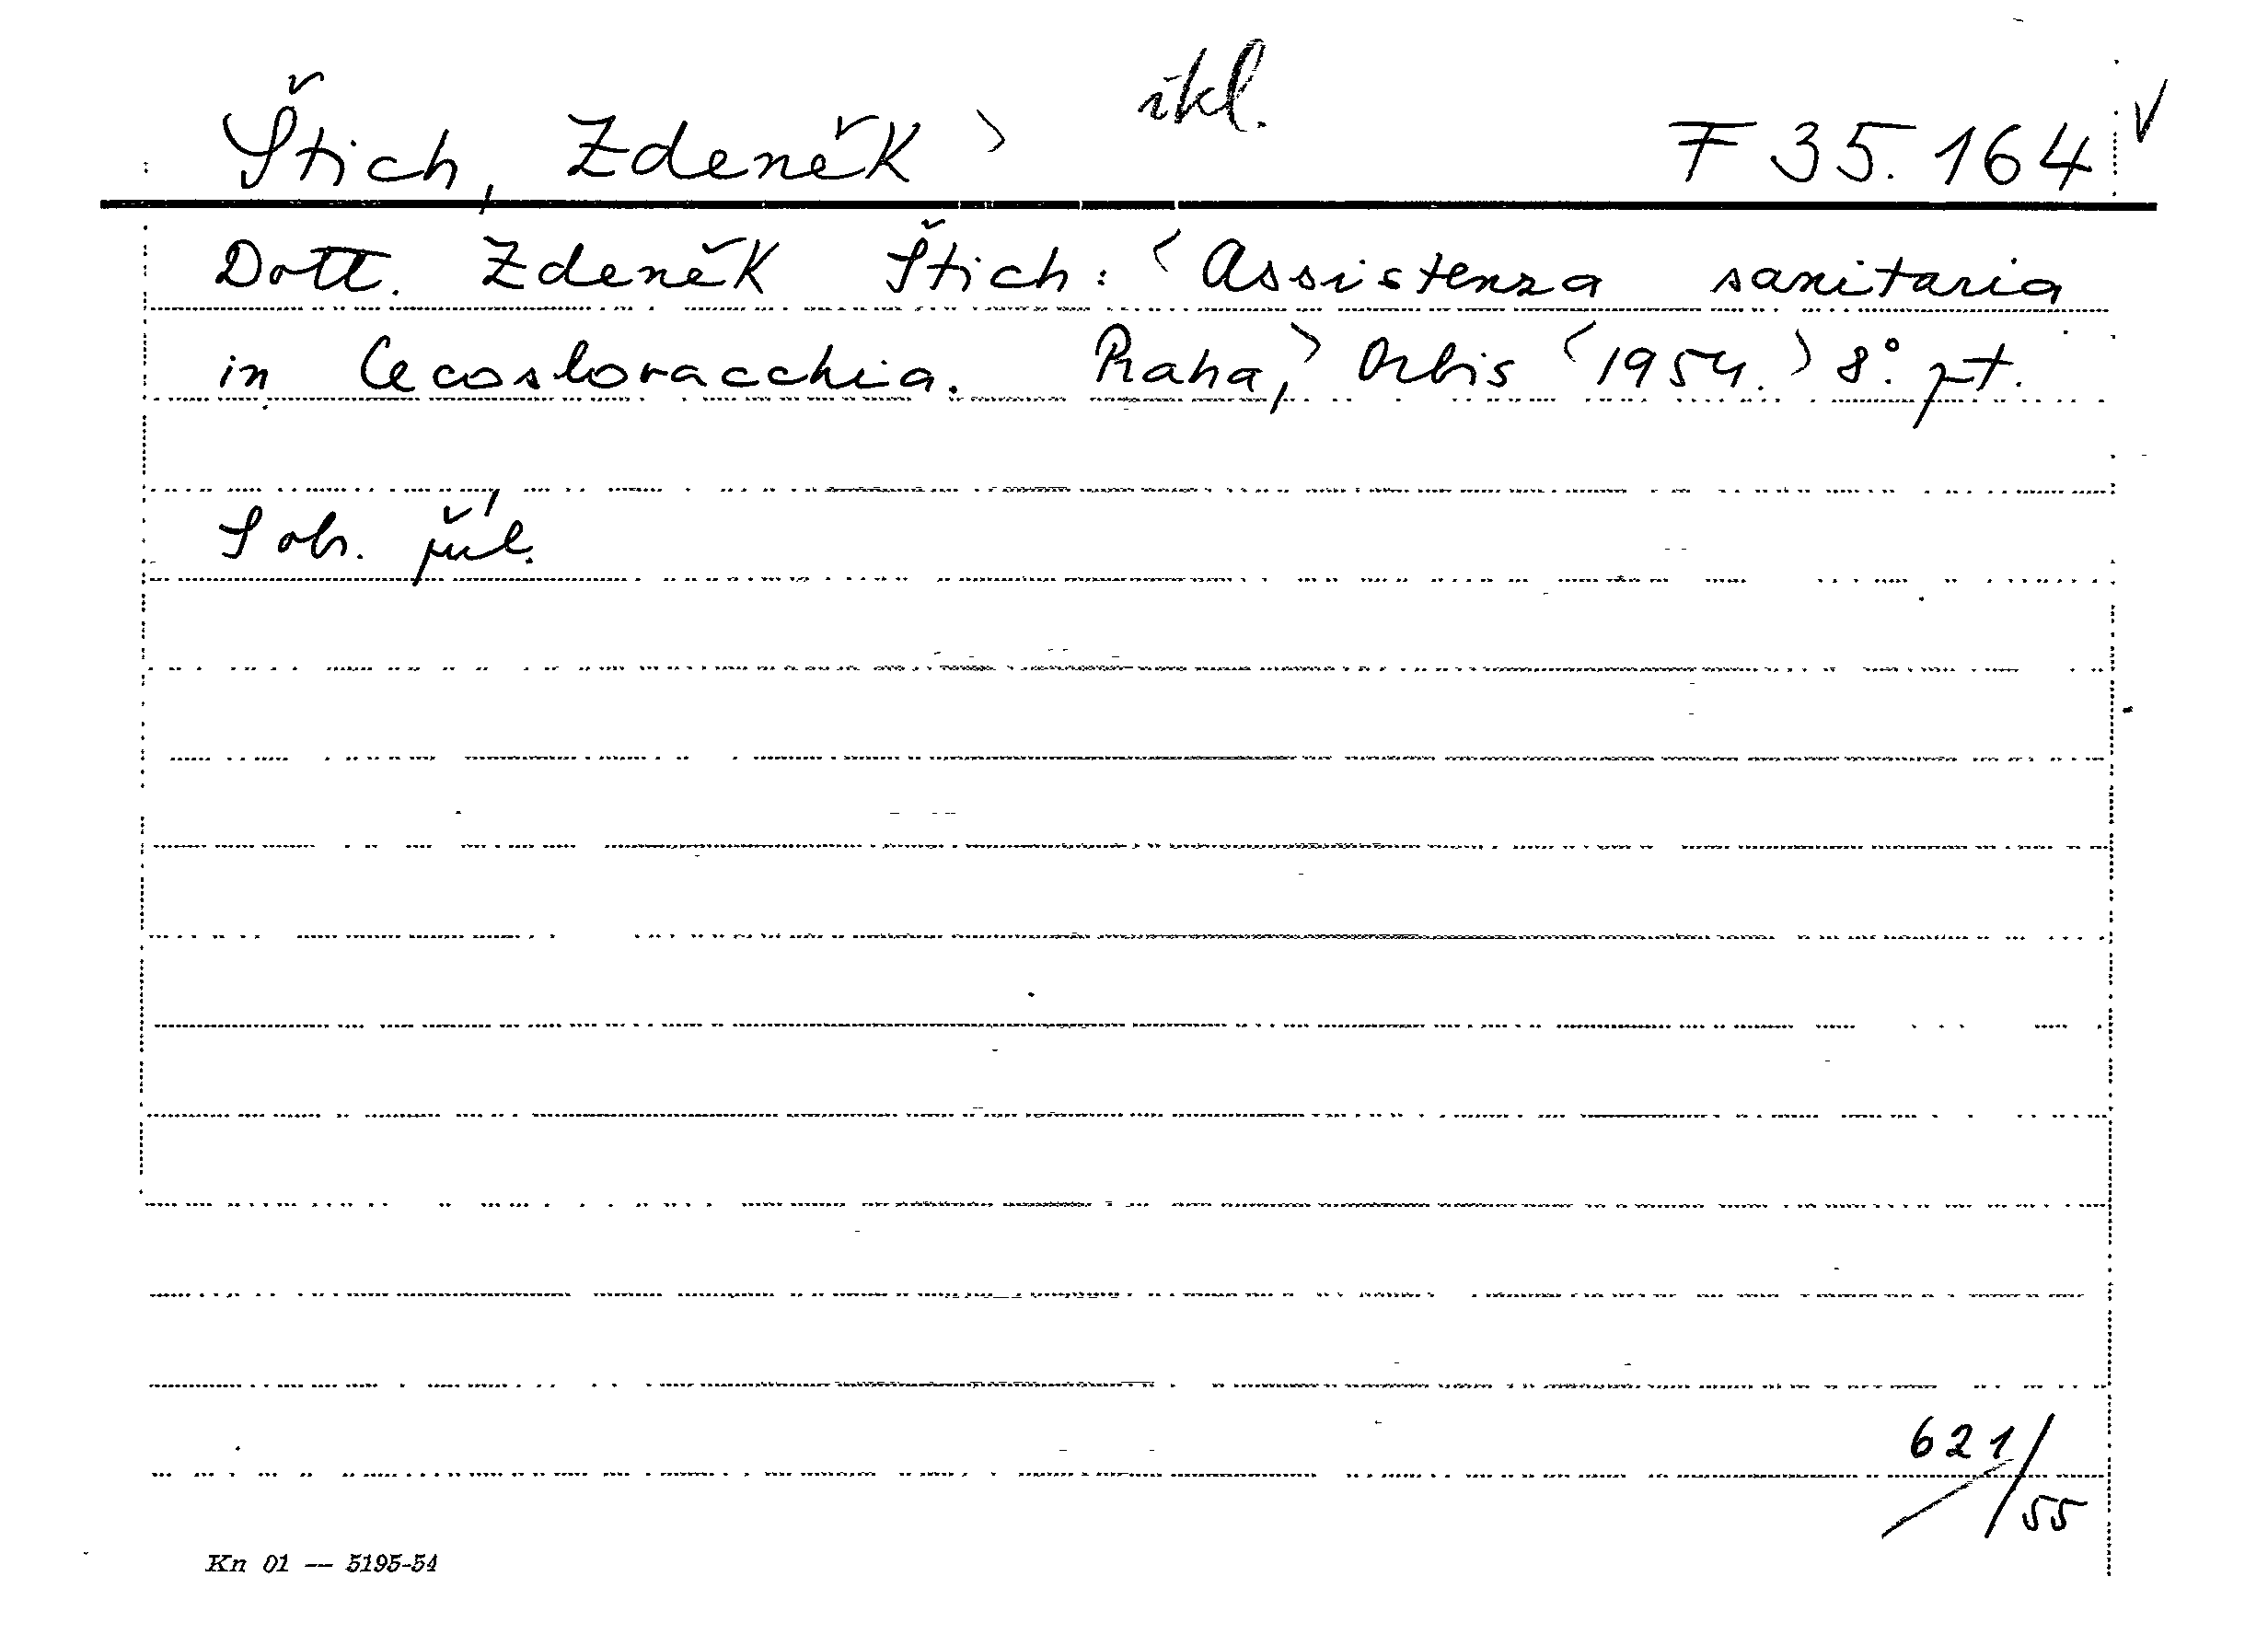 Štich, Zdeněk > F 35.164 √
Dott. Zdeněk Štich: < Assistenza sanitaria
in Cecoslovacchia. Praha, > Orbis < 1954. > 8°. pt.
S obr. příl.
621/55
Kn 01 — 5195-54